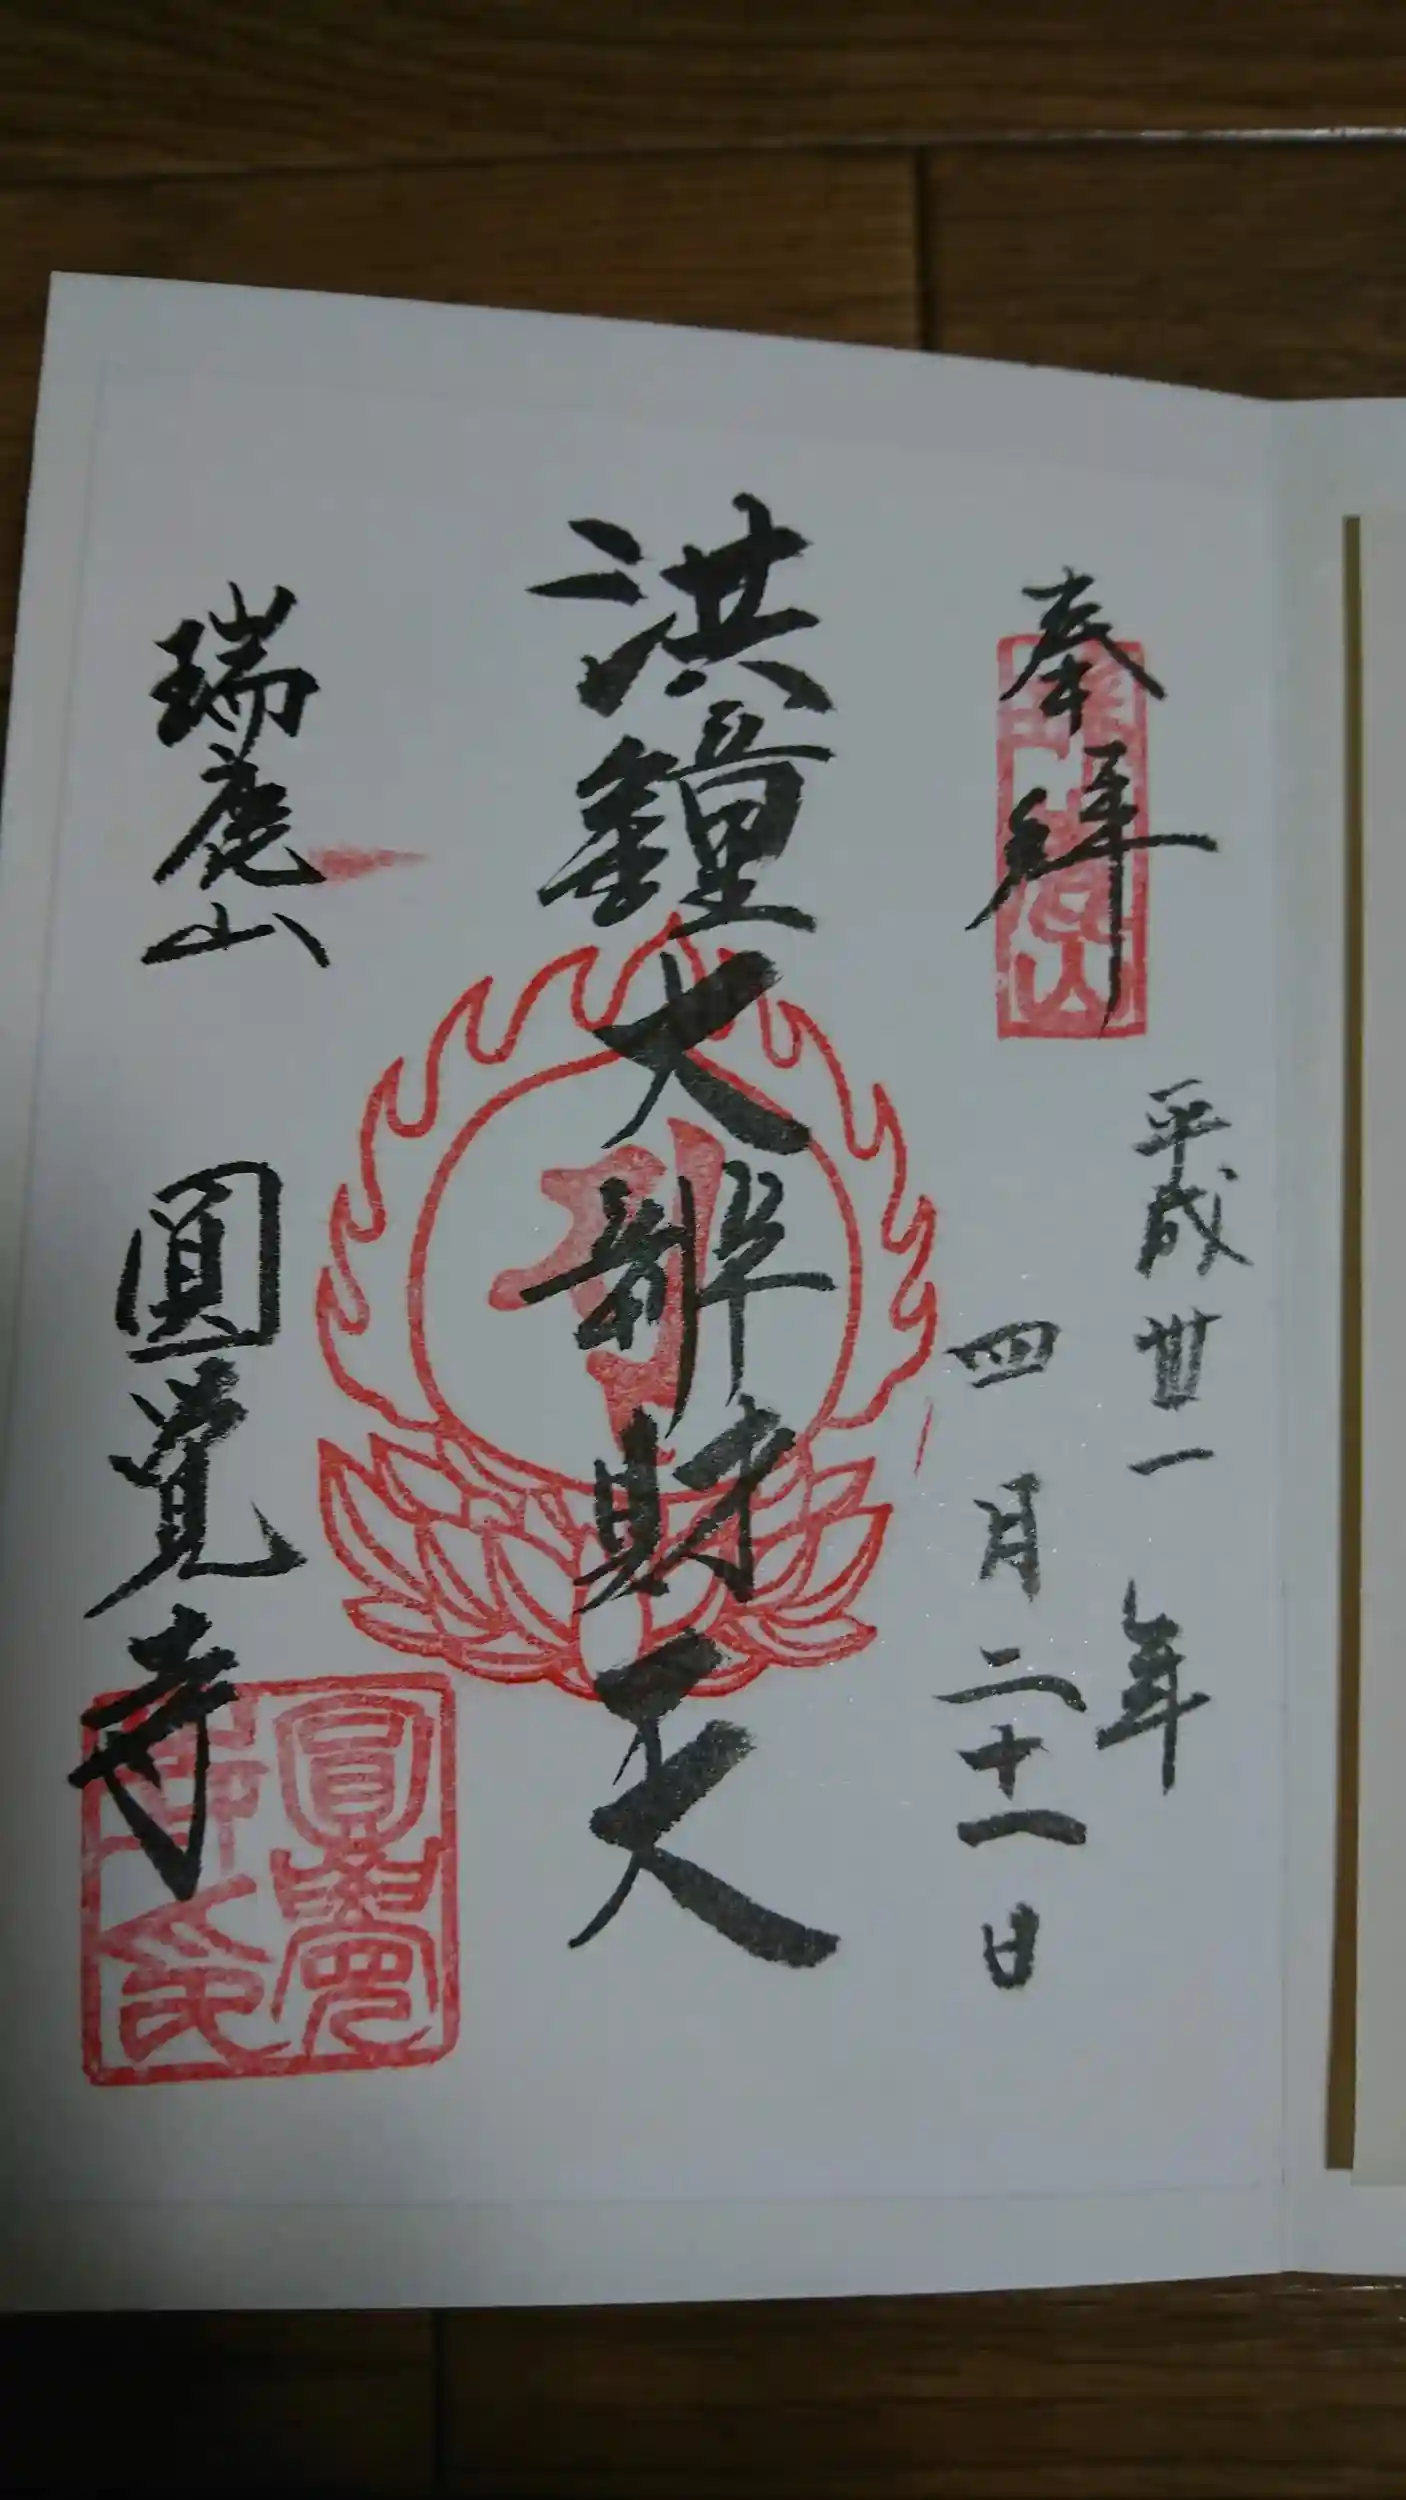 奉拝
平成卅一年
四月二十一日
洪鐘大辨財天
瑞鹿山 圓覺寺
瑞鹿山
圓覺
寺印